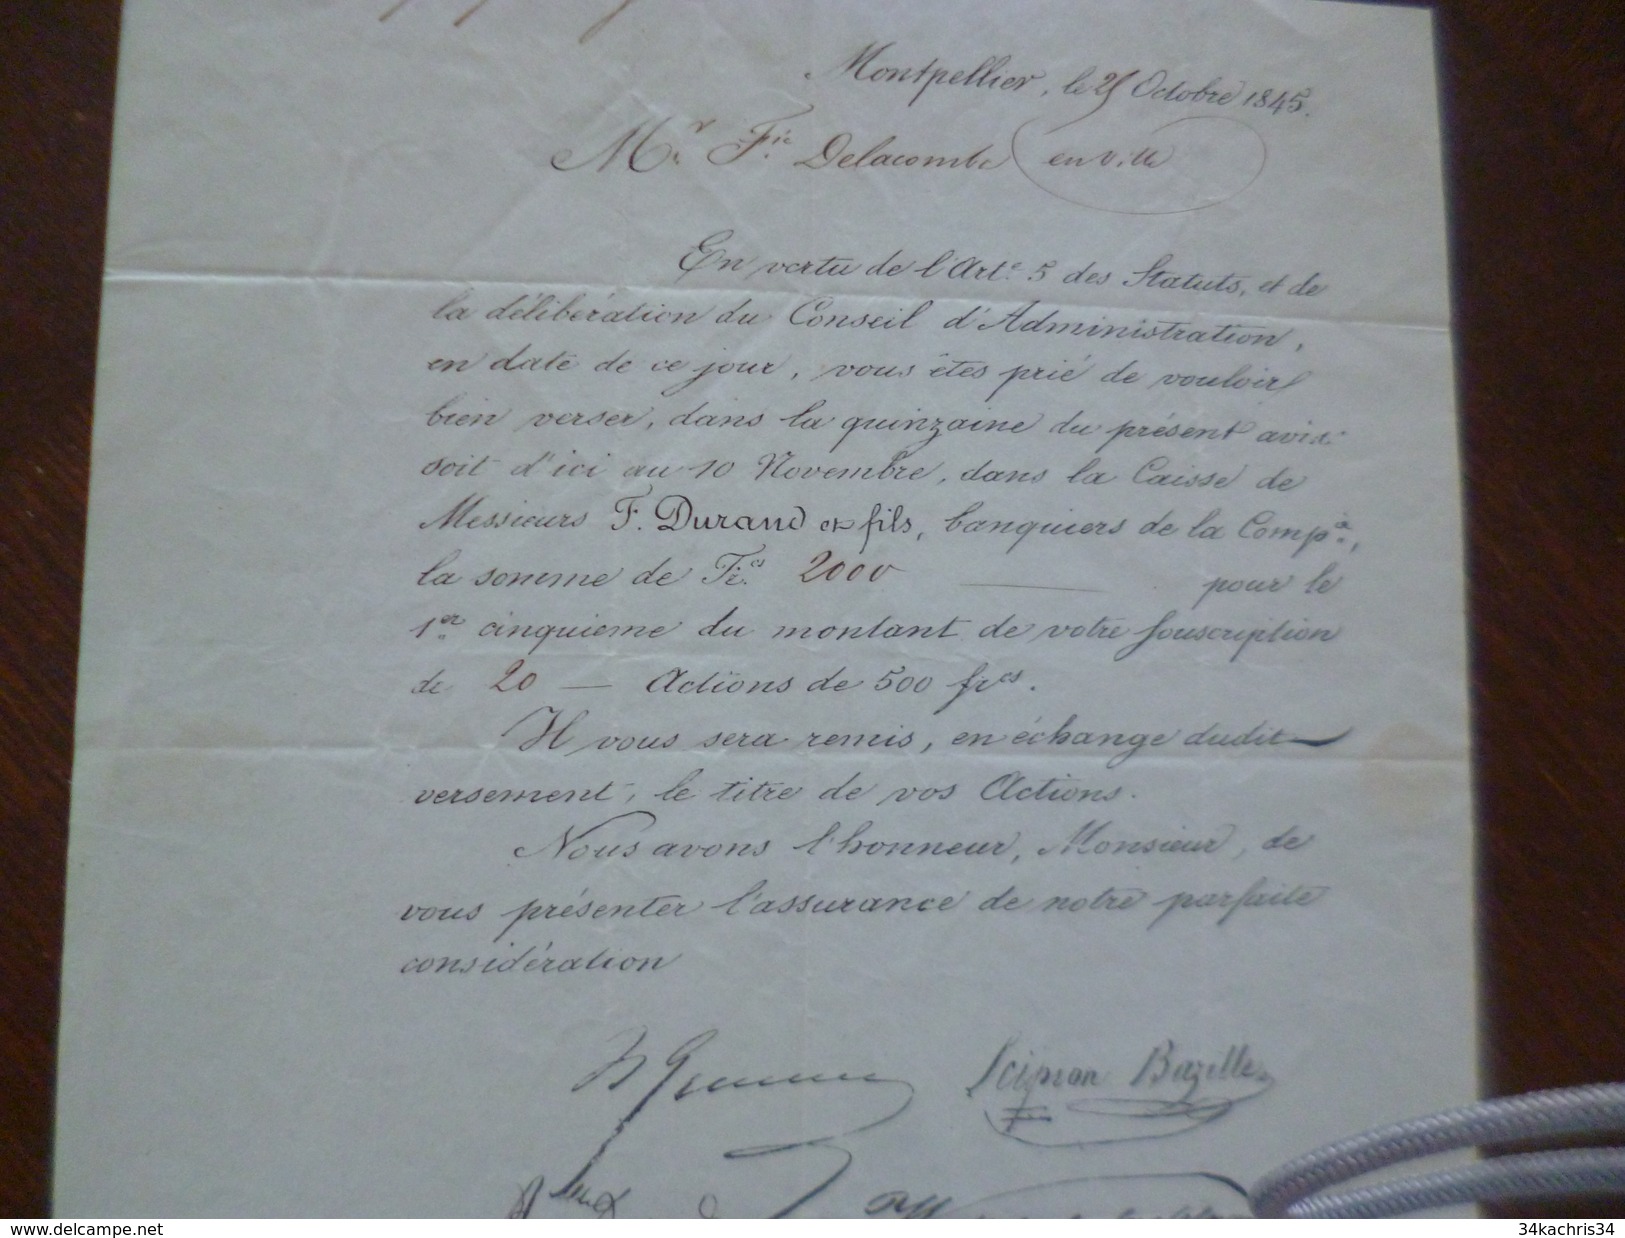 Montpellier, le 25 Octobre 1845.
Mr. Fic. Delacombe en ville
En vertu de l'Arte. 5 des Statuts, et de
la délibération du Conseil d'Administration,
en date de ce jour, vous êtes prié de vouloir
bien verser, dans la quinzaine du présent avis
soit d'ici au 10 Novembre, dans la Caisse de
Messieurs F. Durand et fils, banquiers de la Compie.,
la somme de Frcs. 2000 — pour le
1er. cinquieme du montant de votre Souscription
de 20 — Actions de 500 frcs.
Il vous sera remis, en échange dudit
versement, le titre de vos Actions.
Nous avons l'honneur, Monsieur, de
vous présenter l'assurance de notre parfaite
considération
Scipion Bazille
www.delcampe.net
34kachris34